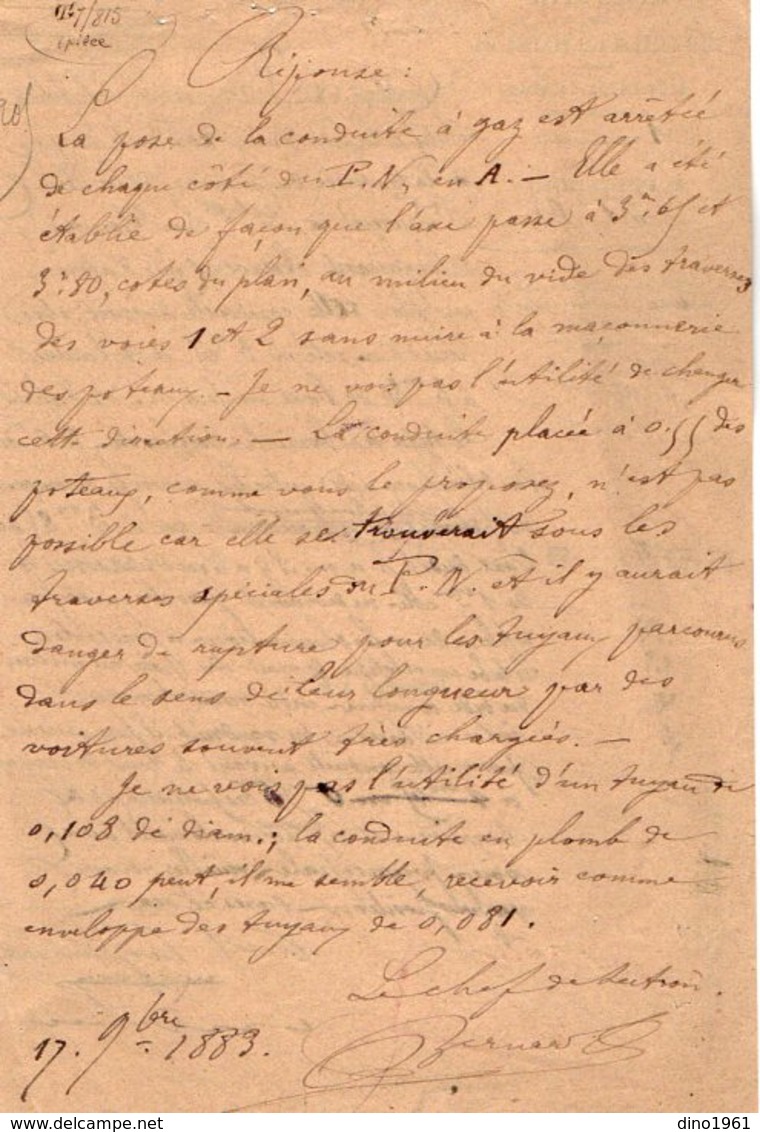 /815
1 pièce
Réponse :
La pose de la conduite à gaz est arrêtée
de chaque côté du P.N. en A. — Elle a été
établie de façon que l'axe passe à 3m.65 et
3m.80, cotes du plan, au milieu du vide des traverses
des voies 1 et 2 sans nuire à la maçonnerie
des poteaux. — Je ne vois pas l'utilité de changer
cette direction. — La conduite placée à 0.55 des
poteaux, comme vous le proposez, n'est pas
possible car elle se trouverait sous les
traverses spéciales du P.N. et il y aurait
danger de rupture pour les tuyaux parcourus
dans le sens de leur longueur par des
voitures souvent très chargées. —
Je ne vois pas l'utilité d'un tuyau de
0,108 de diam.; la conduite en plomb de
0,040 peut, il me semble, recevoir comme
enveloppe des tuyaux de 0,081.
Le chef de section.
17. 9bre 1883.
Bernard
www.delcampe.net
dino1961